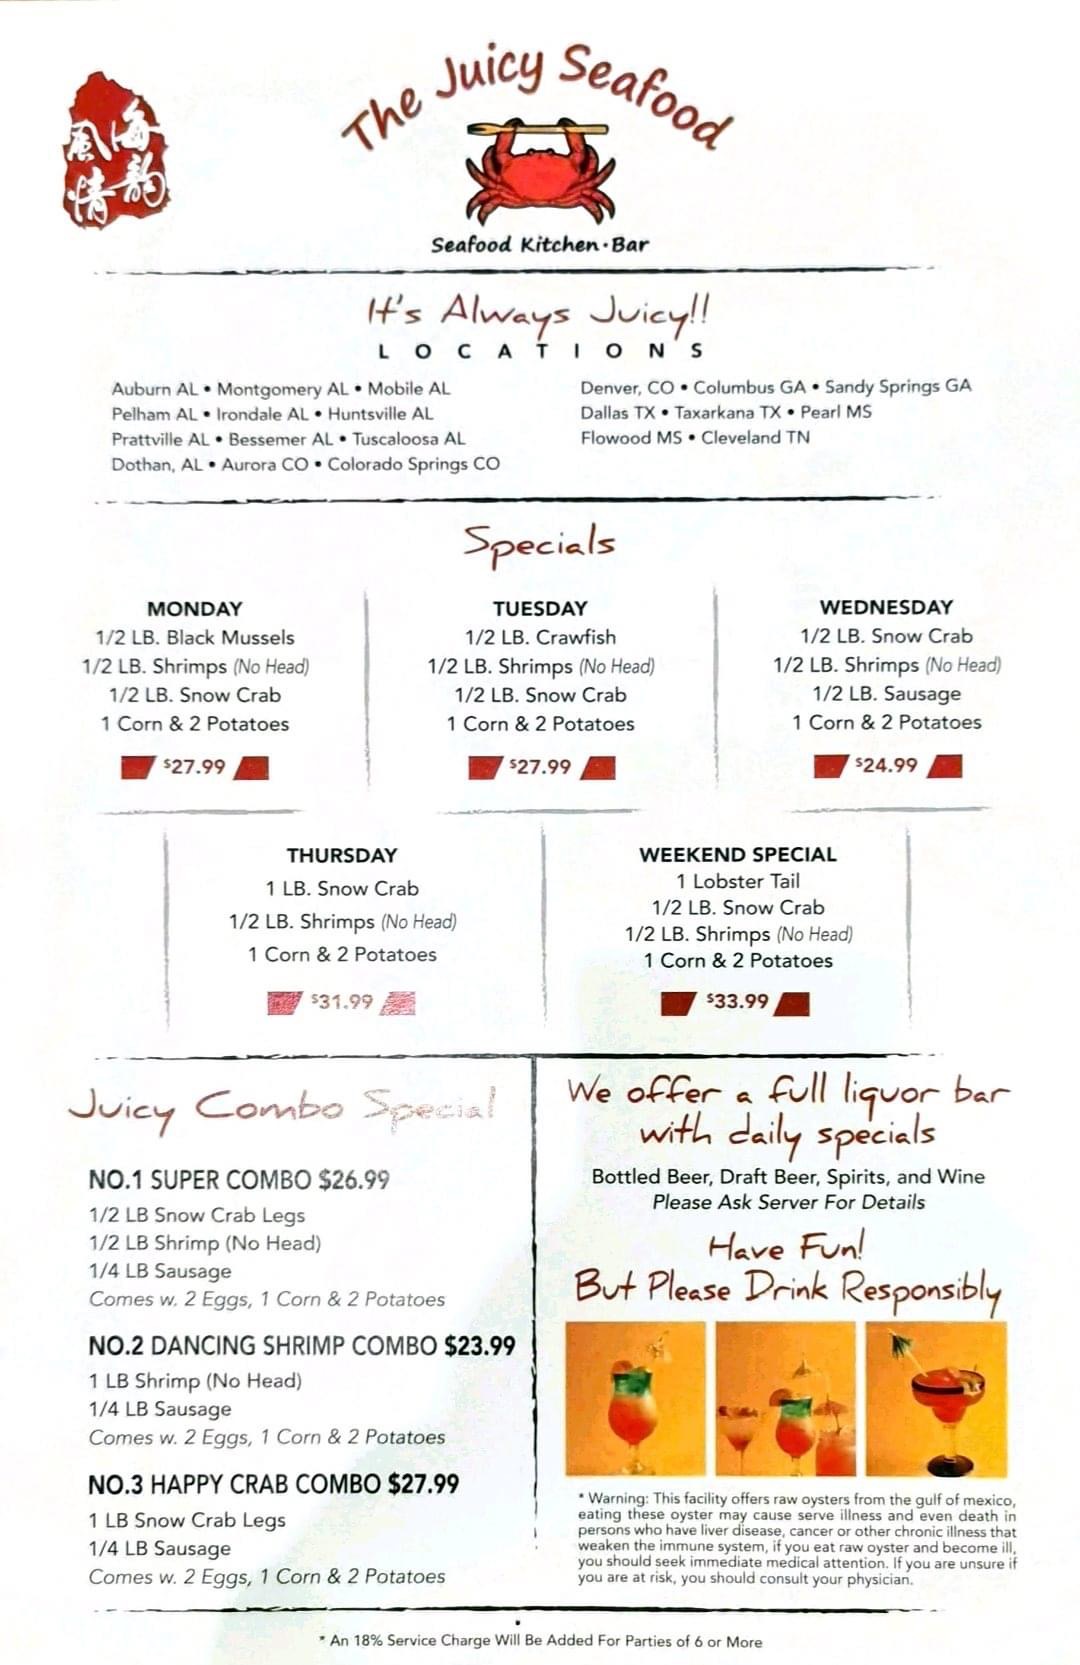 海韵
風情
The Juicy Seafood
Seafood Kitchen·Bar
It's Always Juicy!!
LOCATIONS
Auburn AL • Montgomery AL • Mobile AL
Pelham AL • Irondale AL • Huntsville AL
Prattville AL • Bessemer AL • Tuscaloosa AL
Dothan, AL • Aurora CO • Colorado Springs CO
Denver, CO • Columbus GA • Sandy Springs GA
Dallas TX • Taxarkana TX • Pearl MS
Flowood MS • Cleveland TN
Specials
MONDAY
1/2 LB. Black Mussels
1/2 LB. Shrimps (No Head)
1/2 LB. Snow Crab
1 Corn & 2 Potatoes
$27.99
TUESDAY
1/2 LB. Crawfish
1/2 LB. Shrimps (No Head)
1/2 LB. Snow Crab
1 Corn & 2 Potatoes
$27.99
WEDNESDAY
1/2 LB. Snow Crab
1/2 LB. Shrimps (No Head)
1/2 LB. Sausage
1 Corn & 2 Potatoes
$24.99
THURSDAY
1 LB. Snow Crab
1/2 LB. Shrimps (No Head)
1 Corn & 2 Potatoes
$31.99
WEEKEND SPECIAL
1 Lobster Tail
1/2 LB. Snow Crab
1/2 LB. Shrimps (No Head)
1 Corn & 2 Potatoes
$33.99
Juicy Combo Special
NO.1 SUPER COMBO $26.99
1/2 LB Snow Crab Legs
1/2 LB Shrimp (No Head)
1/4 LB Sausage
Comes w. 2 Eggs, 1 Corn & 2 Potatoes
NO.2 DANCING SHRIMP COMBO $23.99
1 LB Shrimp (No Head)
1/4 LB Sausage
Comes w. 2 Eggs, 1 Corn & 2 Potatoes
NO.3 HAPPY CRAB COMBO $27.99
1 LB Snow Crab Legs
1/4 LB Sausage
Comes w. 2 Eggs, 1 Corn & 2 Potatoes
We offer a full liquor bar
with daily specials
Bottled Beer, Draft Beer, Spirits, and Wine
Please Ask Server For Details
Have Fun!
But Please Drink Responsibly
* Warning: This facility offers raw oysters from the gulf of mexico,
eating these oyster may cause serve illness and even death in
persons who have liver disease, cancer or other chronic illness that
weaken the immune system, if you eat raw oyster and become ill,
you should seek immediate medical attention. If you are unsure if
you are at risk, you should consult your physician.
* An 18% Service Charge Will Be Added For Parties of 6 or More